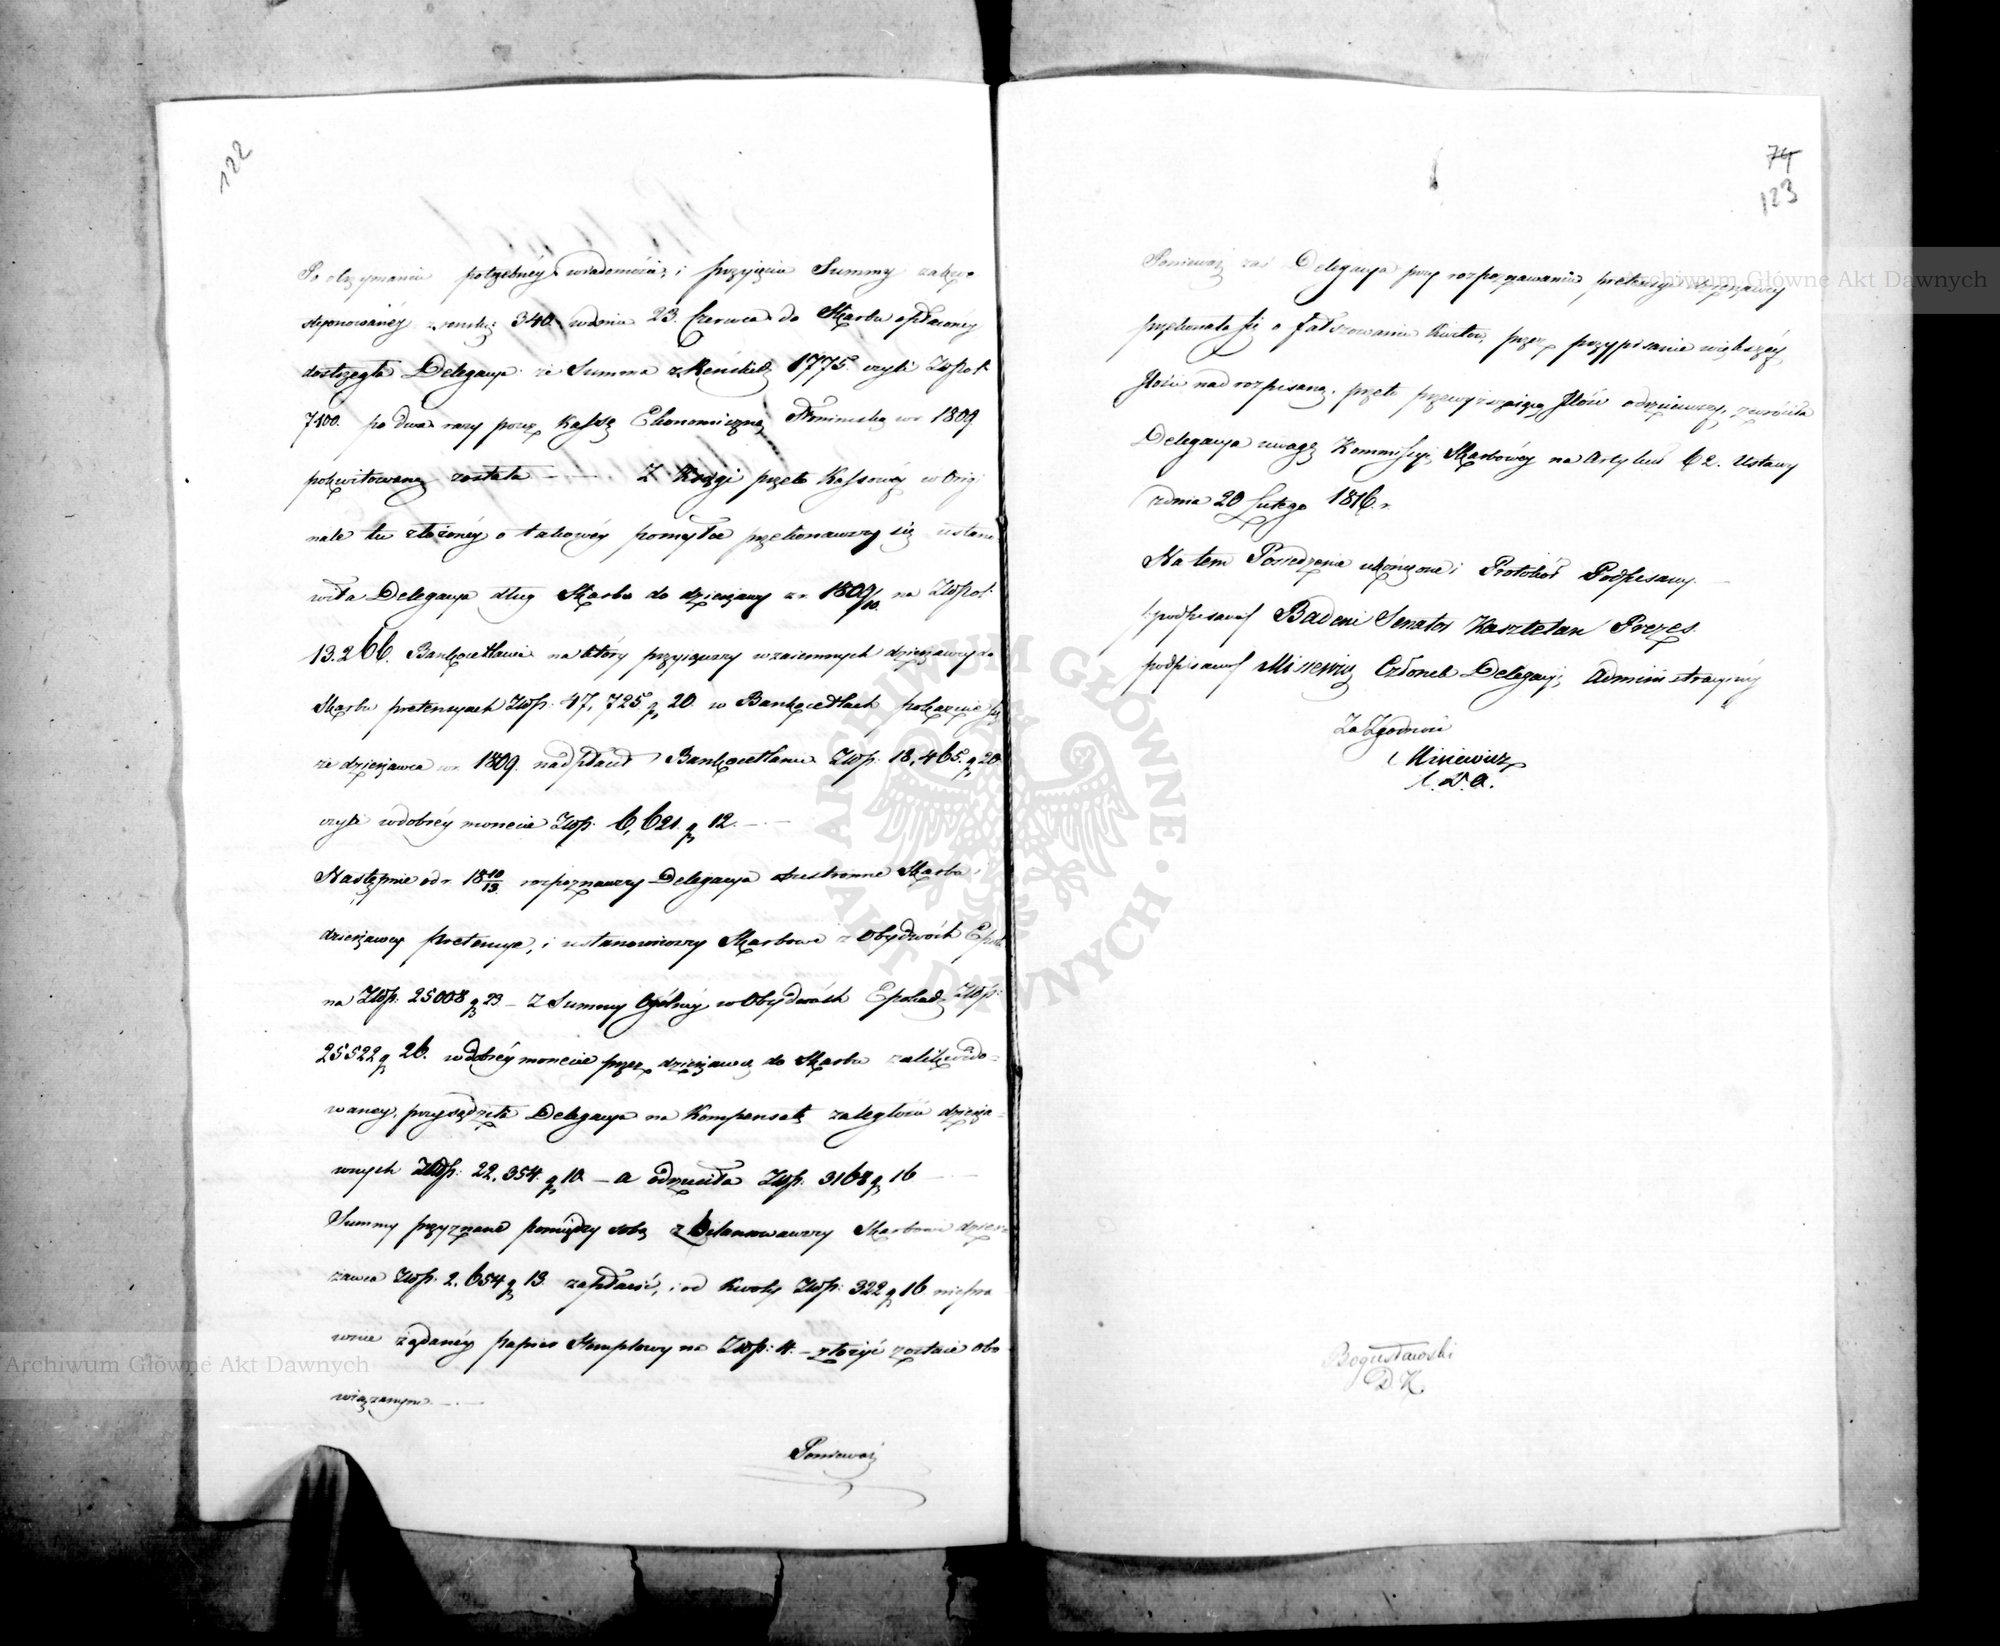 122
Po otrzymaniu potrzebnéy wiadomości, i przyięciu Summy zakwe
styonowanéy z renskich 340. w dniu 23. Czerwca do Skarbu opłaconéy
dostrzegła Delegacya że Summa z Renskich 1775. czyli Złt.Pol:
7100. po dwa razy przez Kassę Ekonomiczną w r. 1809
pokwitowaną została — Z Księgi przeto Kassowéy w Origi
nale tu złożonéy o takowéy pomyłce przekonawszy się ustano
wiła Delegacya dług Skarbu do dzierżawy z r. 1809/10. na Złt.Pol:
13.266. Bankocetlami na który przyiąwszy wzaiemnych dzierżawcy do
Skarbu pretensyach Złtp. 47,725. g 20. w Bankocetlach pokazuie się
że dzierżawca w r. 1809. nadpłacił Bankocetlami Złtp. 18,465. g 20.
czyli w dobréy monecie Złtp. 6,621. g 12. —
Następnie od r. 18 10/13. rozpoznawszy Delegacya obustronne Skarbu i
dzierżawcy pretensye, i ustanowiwszy Skarbowe z Obydwóch Epok
na Złtp. 25008 g 23 — Z Summy Ogólnéy w Obydwóch Epokach Złtp:
25522 g 26. w dobréy monecie przez dzierżawcę do Skarbu zalikwido-
waney, przysądziła Delegacya na Kompensatę zaległości dzierża-
wnych Złtp: 22,354. g 10. — a odrzuciła Złtp. 3168 g 16 —
Summy przyznane pomiędzy sobą zbilansowawszy Skarbowi dzier-
żawca Złtp. 2,654 g 13. zapłacić, i od Kwoty Złtp: 322 g 16. niepra
wnie żądanéy papier Stemplowy na Złtp: 4. — złożyć zostaie obo
wiązanym. —
Ponieważ
74
123
Ponieważ zaś Delegacya przy rozpoznawaniu pretensyi dzierżawcy
przekonała się o fałszowaniu Kwitów, przez przypisanie większéy
Ilości nad rozpisaną. przeto przewyższaiącą Ilość odrzuciwszy, zwróciła
Delegacya uwagę Kommissyi Skarbowéy na Artykuł 62. Ustawy
z dnia 20 Lutego 1816. r.
Na tem Posiedzenie ukończone i Protokół Podpisany. —
podpisano/ Badeni Senator Kasztelan Prezes.
podpisano/ Misiewicz Członek Delegacyi Administracyinéy
Za Zgodność
Misiewicz
C. D. A.
Bogusławski
D. K.
Archiwum Główne Akt Dawnych
Archiwum Główne Akt Dawnych
ARCHIWUM GŁÓWNE AKT DAWNYCH